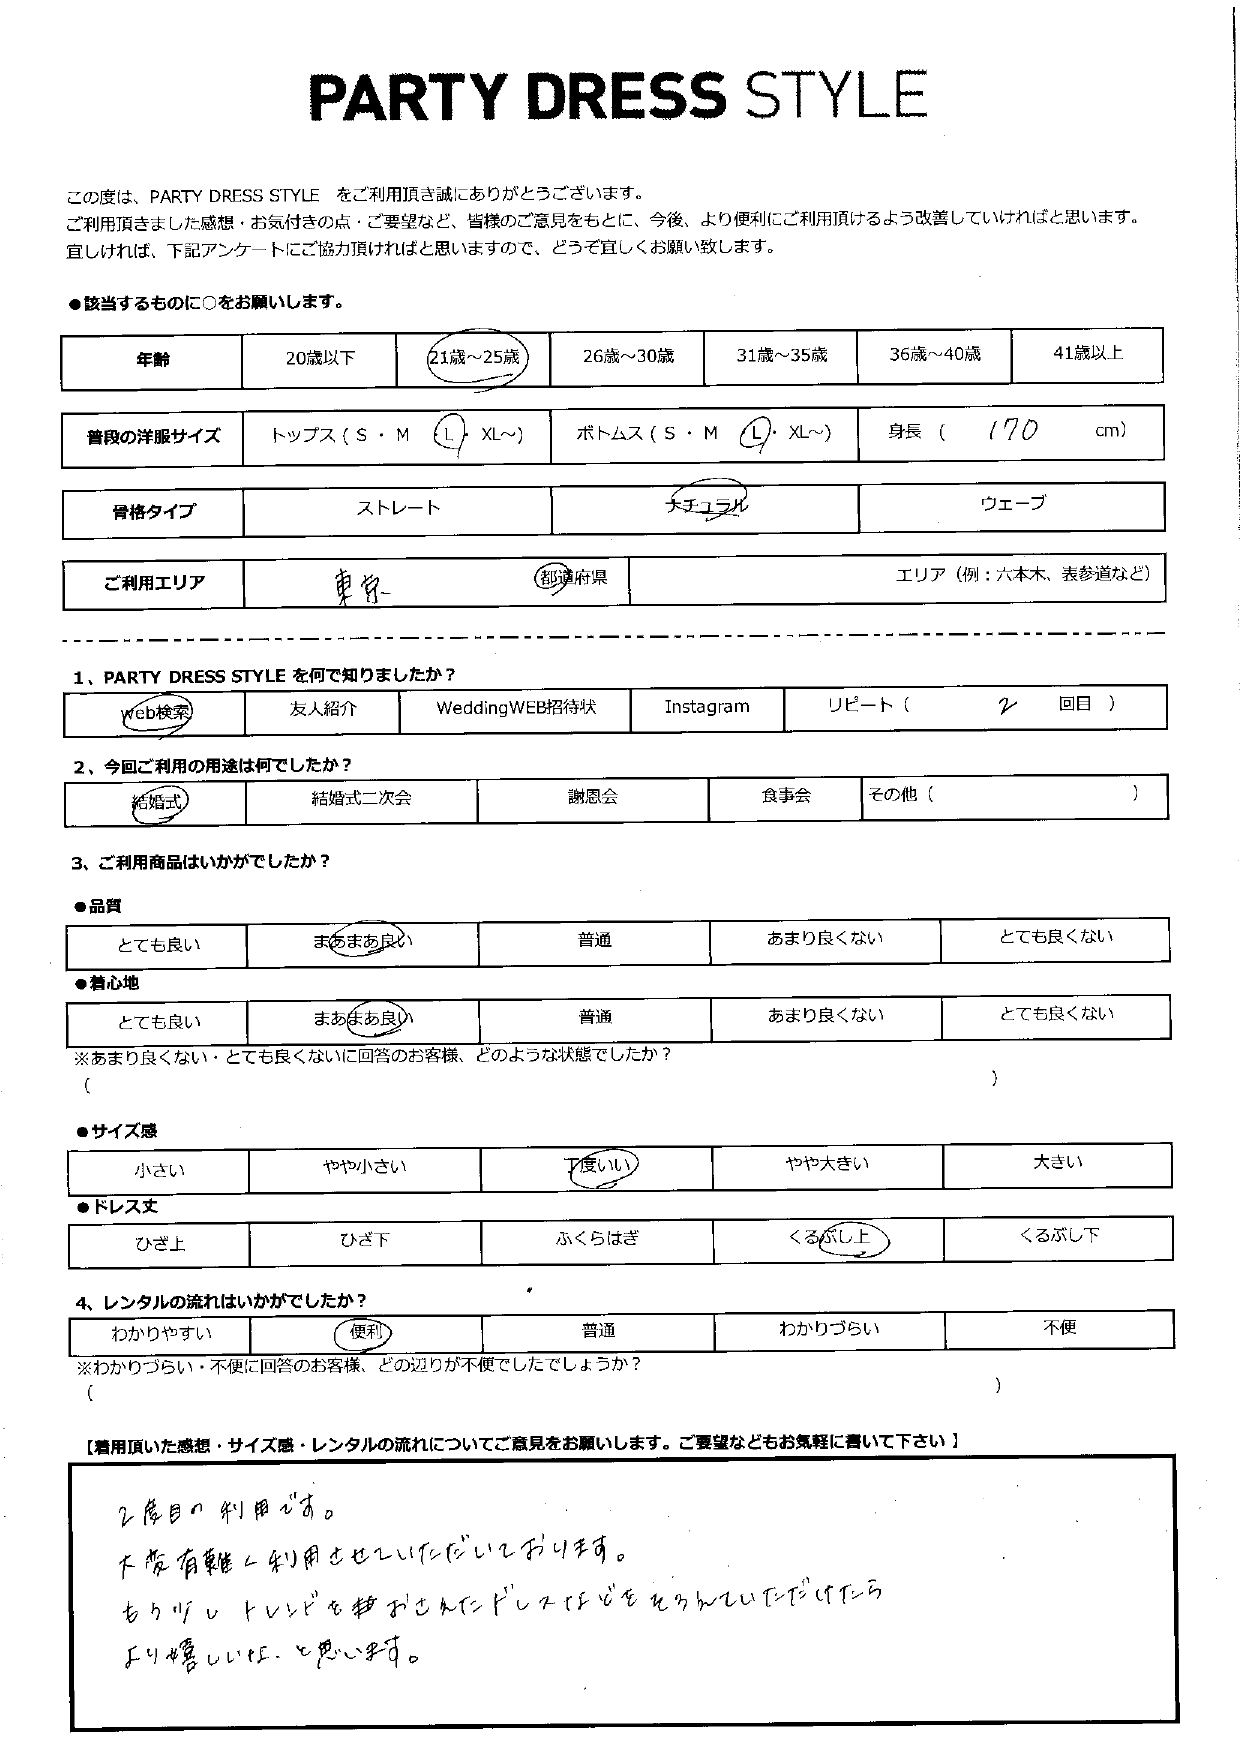 PARTY DRESS STYLE
この度は、PARTY DRESS STYLE をご利用頂き誠にありがとうございます。
ご利用頂きました感想・お気付きの点・ご要望など、皆様のご意見をもとに、今後、より便利にご利用頂けるよう改善していければと思います。
宜しければ、下記アンケートにご協力頂ければと思いますので、どうぞ宜しくお願い致します。
●該当するものに○をお願いします。
年齢 20歳以下 21歳～25歳 26歳～30歳 31歳～35歳 36歳～40歳 41歳以上
普段の洋服サイズ トップス ( S ・ M L ・ XL～) ボトムス ( S ・ M L ・ XL～) 身長 ( 170 cm)
骨格タイプ ストレート ナチュラル ウェーブ
ご利用エリア 東京 都道府県 エリア（例：六本木、表参道など）
1、PARTY DRESS STYLE を何で知りましたか？
web検索 友人紹介 WeddingWEB招待状 Instagram リピート（ 2 回目 ）
2、今回ご利用の用途は何でしたか？
結婚式 結婚式二次会 謝恩会 食事会 その他（ ）
3、ご利用商品はいかがでしたか？
●品質
とても良い まあまあ良い 普通 あまり良くない とても良くない
●着心地
とても良い まあまあ良い 普通 あまり良くない とても良くない
※あまり良くない・とても良くないに回答のお客様、どのような状態でしたか？
（ ）
●サイズ感
小さい やや小さい 丁度いい やや大きい 大きい
●ドレス丈
ひざ上 ひざ下 ふくらはぎ くるぶし上 くるぶし下
4、レンタルの流れはいかがでしたか？
わかりやすい 便利 普通 わかりづらい 不便
※わかりづらい・不便に回答のお客様、どの辺りが不便でしたでしょうか？
（ ）
【着用頂いた感想・サイズ感・レンタルの流れについてご意見をお願いします。ご要望などもお気軽に書いて下さい】
2度目の利用です。
大変有難く利用させていただいております。
もう少しトレンドをおさえたドレスなどをそろえていただけたら
より嬉しいな、と思います。